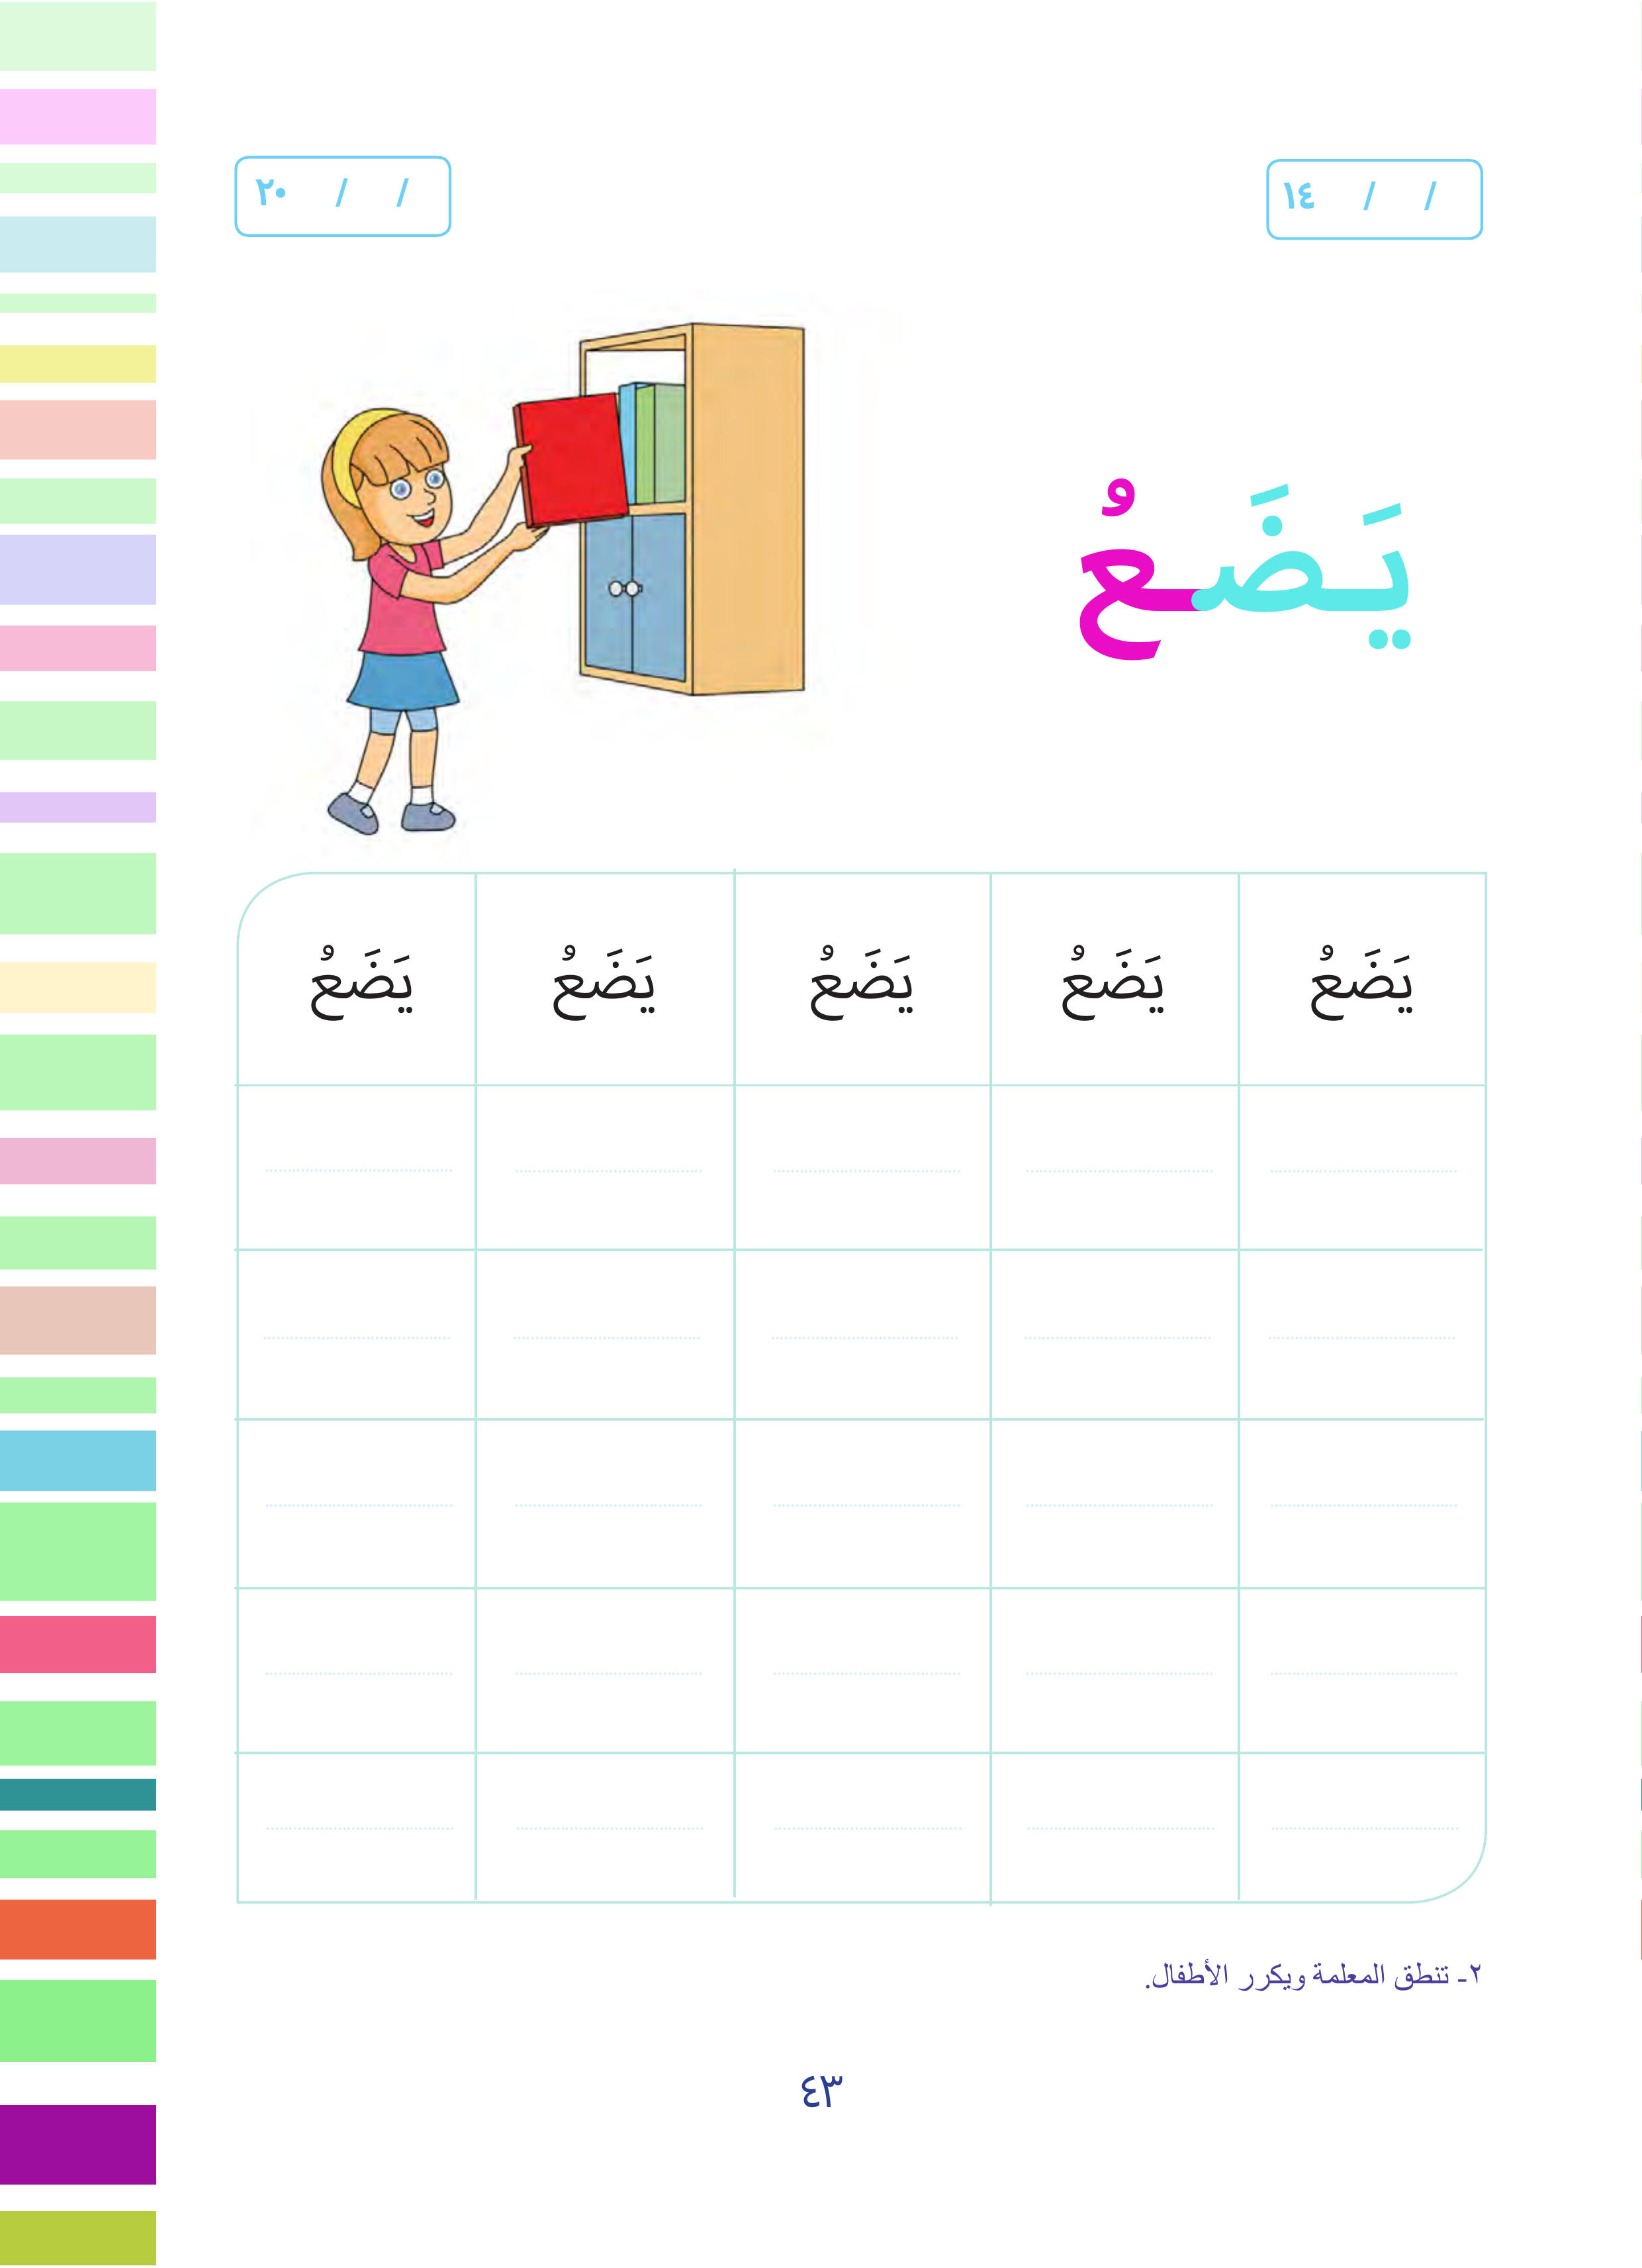 ١٤ / /
٢٠ / /
يَضَعُ
يَضَعُ يَضَعُ يَضَعُ يَضَعُ يَضَعُ
٢- تنطق المعلمة ويكرر الأطفال.
٤٣